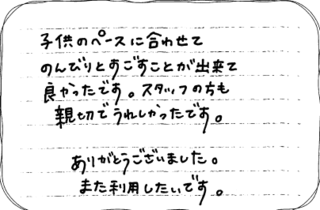 子供のペースに合わせて
のんびりとすごすことが出来て
良かったです。スタッフの方も
親切でうれしかったです。
ありがとうございました。
また利用したいです。